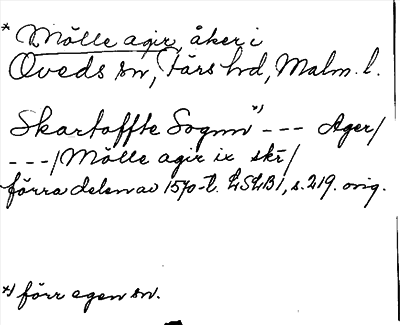 * Mölle agir, åker i
Öveds sn, Färs hd, Malm. l.
Skartoffte Sognn *) --- Ager/
---/Mölle agir ix skr/
förra delen av 1570-t. LSLB 1, s. 219. orig.
*) förr egen sn.